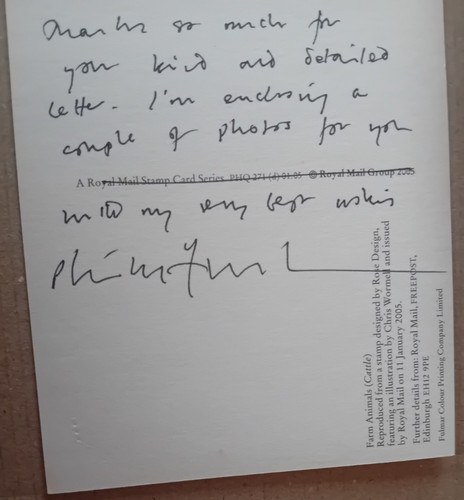 Thanks so much for
your kind and detailed
letter. I'm enclosing a
couple of photos for you
A Royal Mail Stamp Card Series PHQ 271 (d) 01.05 © Royal Mail Group 2005
with my very best wishes
Farm Animals (Cattle)
Reproduced from a stamp designed by Rose Design,
featuring an illustration by Chris Wormell and issued
by Royal Mail on 11 January 2005.
Further details from: Royal Mail, FREEPOST,
Edinburgh EH12 9PE
Fulmar Colour Printing Company Limited